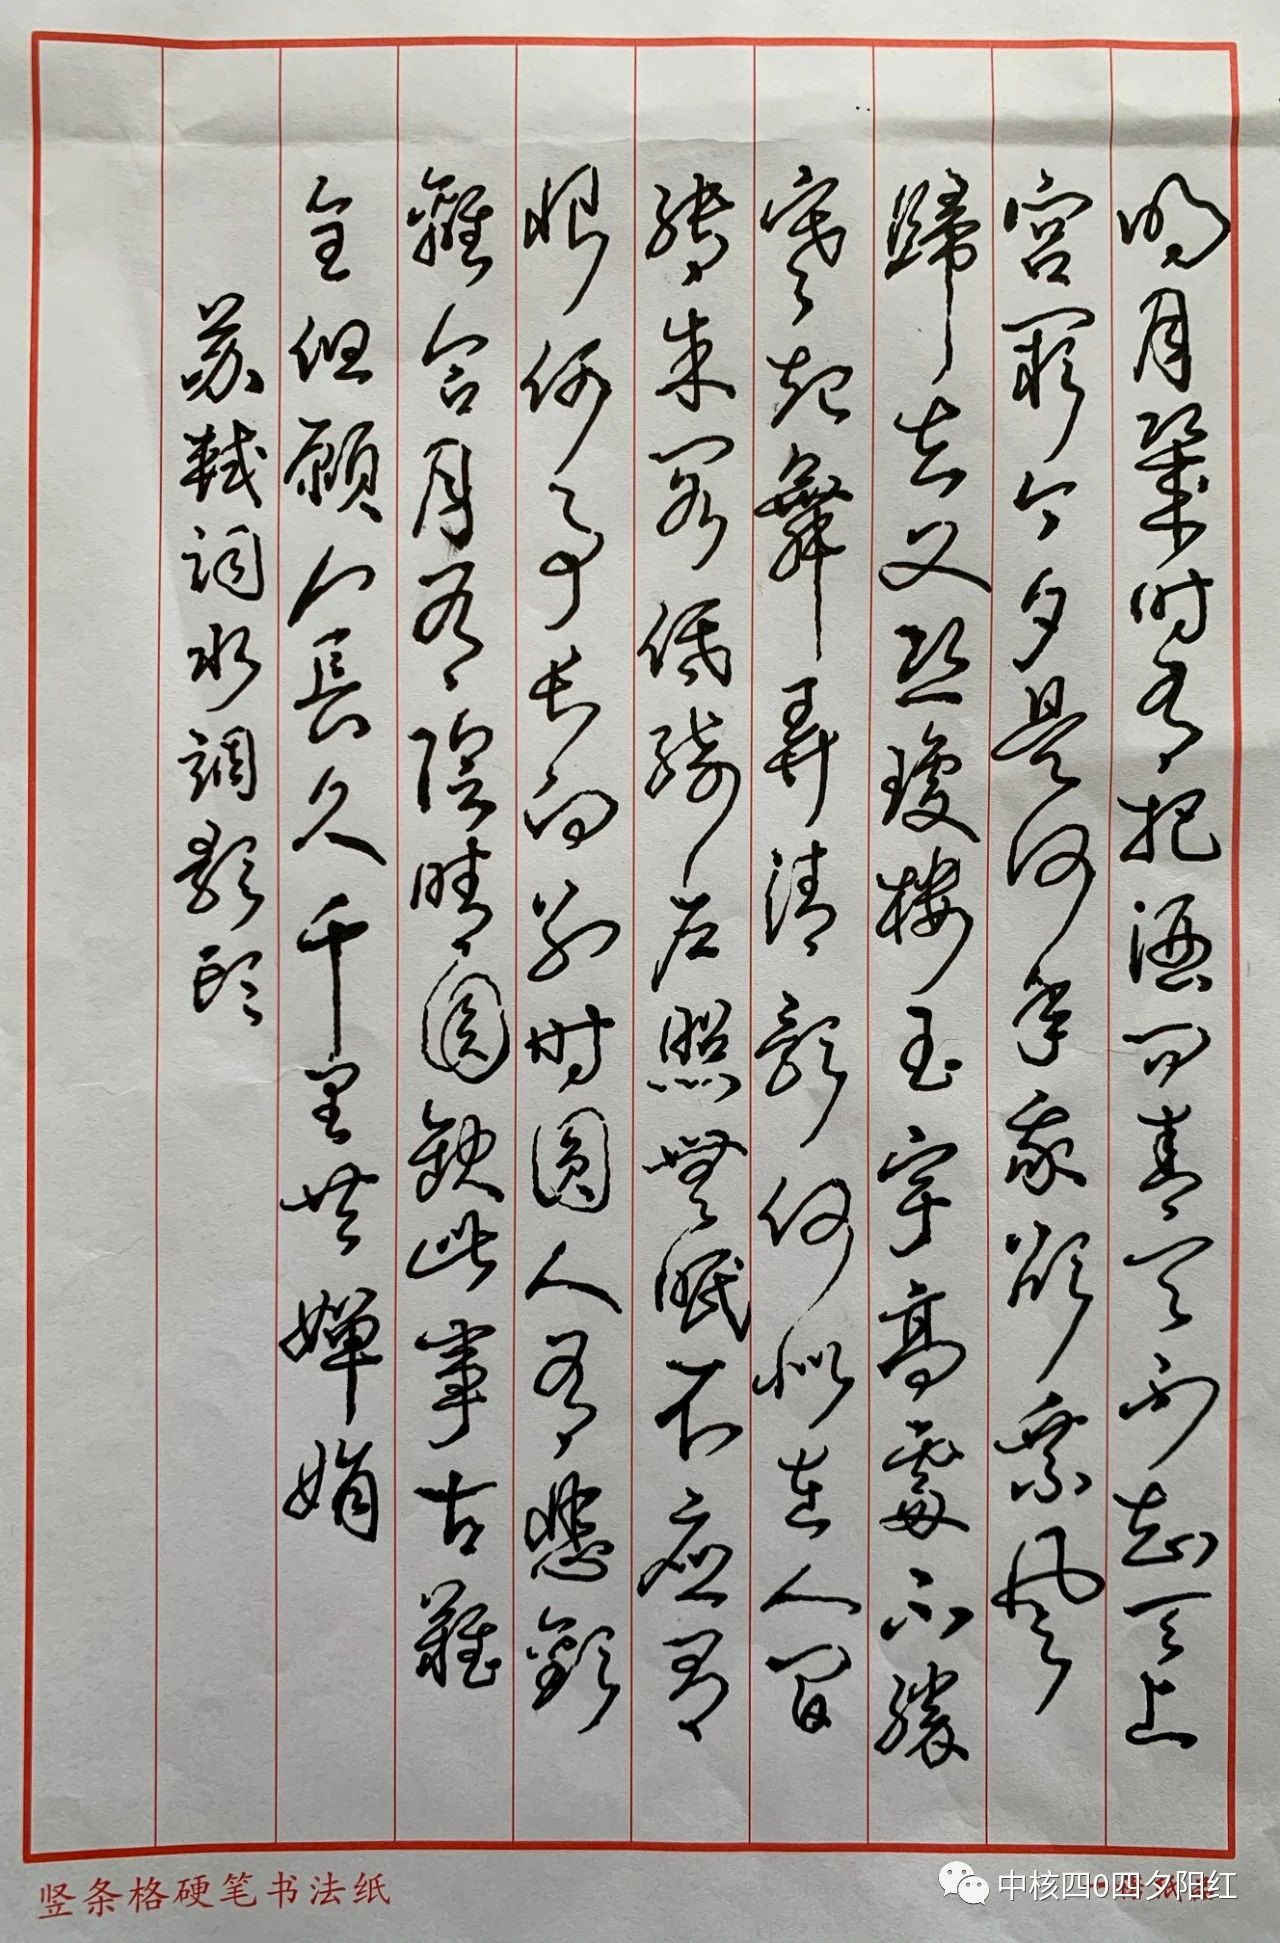 明月幾时有把酒问青天不知天上
宫阙今夕是何年我欲乘风
歸去又恐瓊楼玉宇高處不勝
寒起舞弄清影何似在人间
转朱阁低绮户照無眠不应有
恨何事长向别時圆人有悲歡
離合月有陰晴圆缺此事古難
全但願人長久千里共嬋娟
苏軾词水調歌头
竖条格硬笔书法纸
中核四0四夕阳红